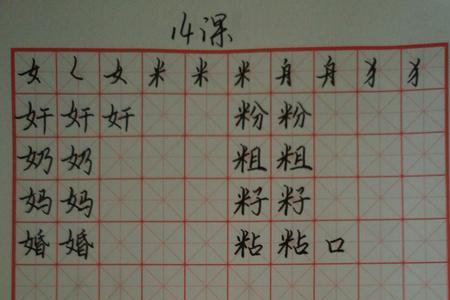 14课
女 く 女 米 米 米 舟 舟 犭 犭
奸 奸 奸 粉 粉
奶 奶 粗 粗
妈 妈 籽 籽
婚 婚 粘 粘 口